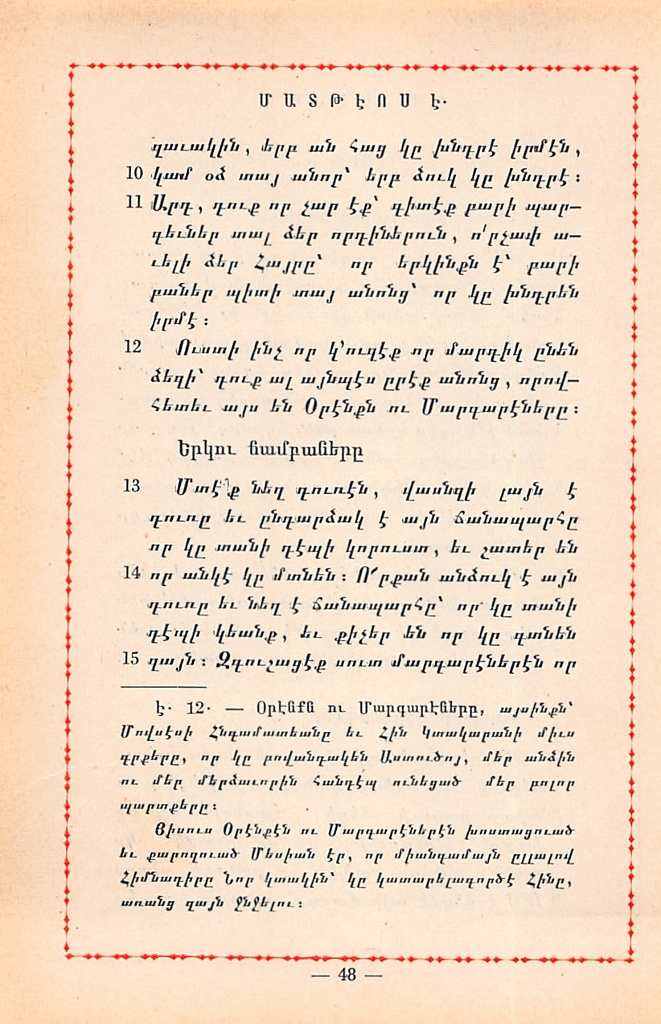 ՄԱՏԹԷՈՍ Է․
զաւակին, երբ ան հաց կը խնդրէ իրմէն,
10 կամ օձ տայ անոր՝ երբ ձուկ կը խնդրէ։
11 Արդ, դուք որ չար էք՝ գիտէք բարի պար–
գեւներ տալ ձեր որդիներուն, ո՛րչափ ա–
ւելի ձեր Հայրը՝ որ երկինքն է՝ բարի
բաներ պիտի տայ անոնց՝ որ կը խնդրեն
իրմէ։
12 Ուստի ինչ որ կ՚ուզէք որ մարդիկ ընեն
ձեզի՝ դուք ալ այնպէս ըրէք անոնց, որով–
հետեւ այս են Օրէնքն ու Մարգարէները։
Երկու ճամբաները
13 Մտէ՛ք նեղ դուռէն, վասնզի լայն է
դուռը եւ ընդարձակ է այն ճանապարհը
որ կը տանի դէպի կորուստ, եւ շատեր են
14 որ անկէ կը մտնեն։ Ո՜րքան անձուկ է այն
դուռը եւ նեղ է ճանապարհը՝ որ կը տանի
դէպի կեանք, եւ քիչեր են որ կը գտնեն
15 զայն։ Զգուշացէք սուտ մարգարէներէն որ
Է․ 12․ — Օրէնքն ու Մարգարէները, այսինքն՝
Մովսէսի Հնգամատեանը եւ Հին Կտակարանի միւս
գրքերը, որ կը բովանդակեն Աստուծոյ, մեր անձին
ու մեր մերձաւորին հանդէպ ունեցած մեր բոլոր
պարտքերը։
Յիսուս Օրէնքէն ու Մարգարէներէն խոստացուած
եւ քարոզուած Մեսիան էր, որ միանգամայն ըլլալով
Հիմնադիրը Նոր կտակին՝ կը կատարելագործէ Հինը,
առանց զայն ջնջելու։
— 48 —